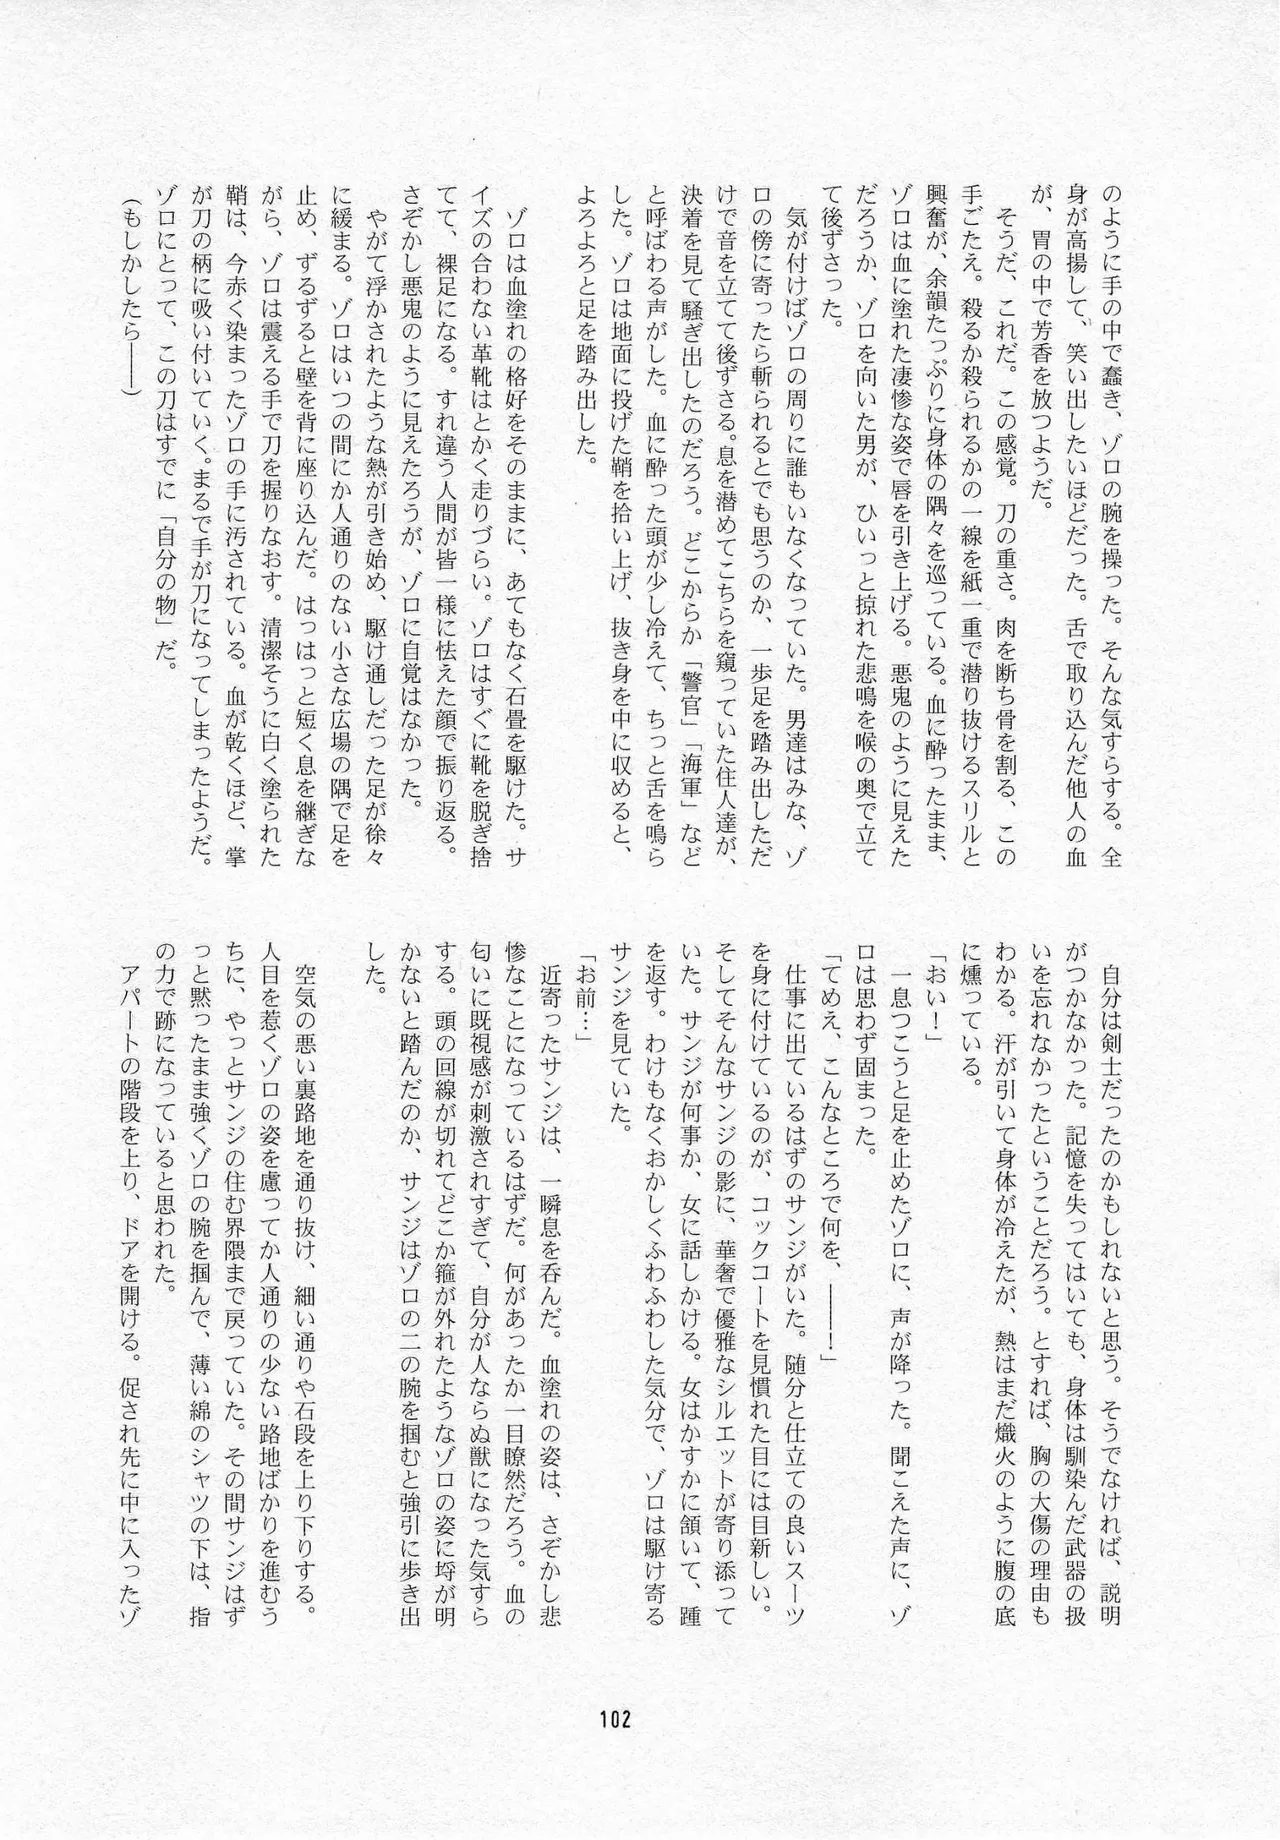 のように手の中で蠢き、ゾロの腕を操った。そんな気すらする。全
身が高揚して、笑い出したいほどだった。舌で取り込んだ他人の血
が、胃の中で芳香を放つようだ。
そうだ、これだ。この感覚。刀の重さ。肉を断ち骨を割る、この
手ごたえ。殺るか殺られるかの一線を紙一重で潜り抜けるスリルと
興奮が、余韻たっぷりに身体の隅々を巡っている。血に酔ったまま、
ゾロは血に塗れた凄惨な姿で唇を引き上げる。悪鬼のように見えた
だろうか、ゾロを向いた男が、ひいっと掠れた悲鳴を喉の奥で立て
て後ずさった。
気が付けばゾロの周りに誰もいなくなっていた。男達はみな、ゾ
ロの傍に寄ったら斬られるとでも思うのか、一歩足を踏み出しただ
けで音を立てて後ずさる。息を潜めてこちらを窺っていた住人達が、
決着を見て騒ぎ出したのだろう。どこからか「警官」「海軍」など
と呼ばわる声がした。血に酔った頭が少し冷えて、ちっと舌を鳴ら
した。ゾロは地面に投げた鞘を拾い上げ、抜き身を中に収めると、
よろよろと足を踏み出した。
ゾロは血塗れの格好をそのままに、あてもなく石畳を駆けた。サ
イズの合わない革靴はとかく走りづらい。ゾロはすぐに靴を脱ぎ捨
てて、裸足になる。すれ違う人間が皆一様に怯えた顔で振り返る。
さぞかし悪鬼のように見えたろうが、ゾロに自覚はなかった。
やがて浮かされたような熱が引き始め、駆け通しだった足が徐々
に緩まる。ゾロはいつの間にか人通りのない小さな広場の隅で足を
止め、ずるずると壁を背に座り込んだ。はっはっと短く息を継ぎな
がら、ゾロは震える手で刀を握りなおす。清潔そうに白く塗られた
鞘は、今赤く染まったゾロの手に汚されている。血が乾くほど、掌
が刀の柄に吸い付いていく。まるで手が刀になってしまったようだ。
ゾロにとって、この刀はすでに「自分の物」だ。
（もしかしたら――）
自分は剣士だったのかもしれないと思う。そうでなければ、説明
がつかなかった。記憶を失ってはいても、身体は馴染んだ武器の扱
いを忘れなかったということだろう。とすれば、胸の大傷の理由も
わかる。汗が引いて身体が冷えたが、熱はまだ熾火のように腹の底
に燻っている。
「おい！」
一息つこうと足を止めたゾロに、声が降った。聞こえた声に、ゾ
ロは思わず固まった。
「てめえ、こんなところで何を、――！」
仕事に出ているはずのサンジがいた。随分と仕立ての良いスーツ
を身に付けているのが、コックコートを見慣れた目には目新しい。
そしてそんなサンジの影に、華奢で優雅なシルエットが寄り添って
いた。サンジが何事か、女に話しかける。女はかすかに頷いて、踵
を返す。わけもなくおかしくふわふわした気分で、ゾロは駆け寄る
サンジを見ていた。
「お前…」
近寄ったサンジは、一瞬息を呑んだ。血塗れの姿は、さぞかし悲
惨なことになっているはずだ。何があったか一目瞭然だろう。血の
匂いに既視感が刺激されすぎて、自分が人ならぬ獣になった気すら
する。頭の回線が切れてどこか箍が外れたようなゾロの姿に埒が明
かないと踏んだのか、サンジはゾロの二の腕を掴むと強引に歩き出
した。
空気の悪い裏路地を通り抜け、細い通りや石段を上り下りする。
人目を惹くゾロの姿を慮ってか人通りの少ない路地ばかりを進むう
ちに、やっとサンジの住む界隈まで戻っていた。その間サンジはず
っと黙ったまま強くゾロの腕を掴んで、薄い綿のシャツの下は、指
の力で跡になっていると思われた。
アパートの階段を上り、ドアを開ける。促され先に中に入ったゾ
102